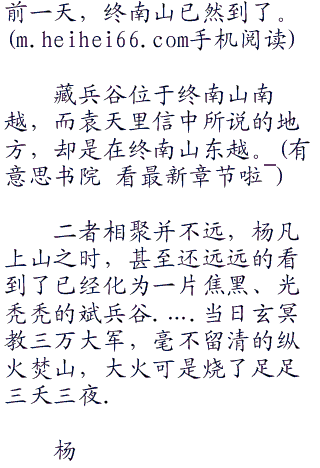 前一天，终南山已然到了。
(m.heihei66.com手机阅读)
藏兵谷位于终南山南
越，而袁天里信中所说的地
方，却是在终南山东越。(有
意思书院 看最新章节啦¯)
二者相聚并不远，杨凡
上山之时，甚至还远远的看
到了已经化为一片焦黑、光
秃秃的斌兵谷.….当日玄冥
教三万大军，毫不留清的纵
火焚山，大火可是烧了足足
三天三夜.
杨